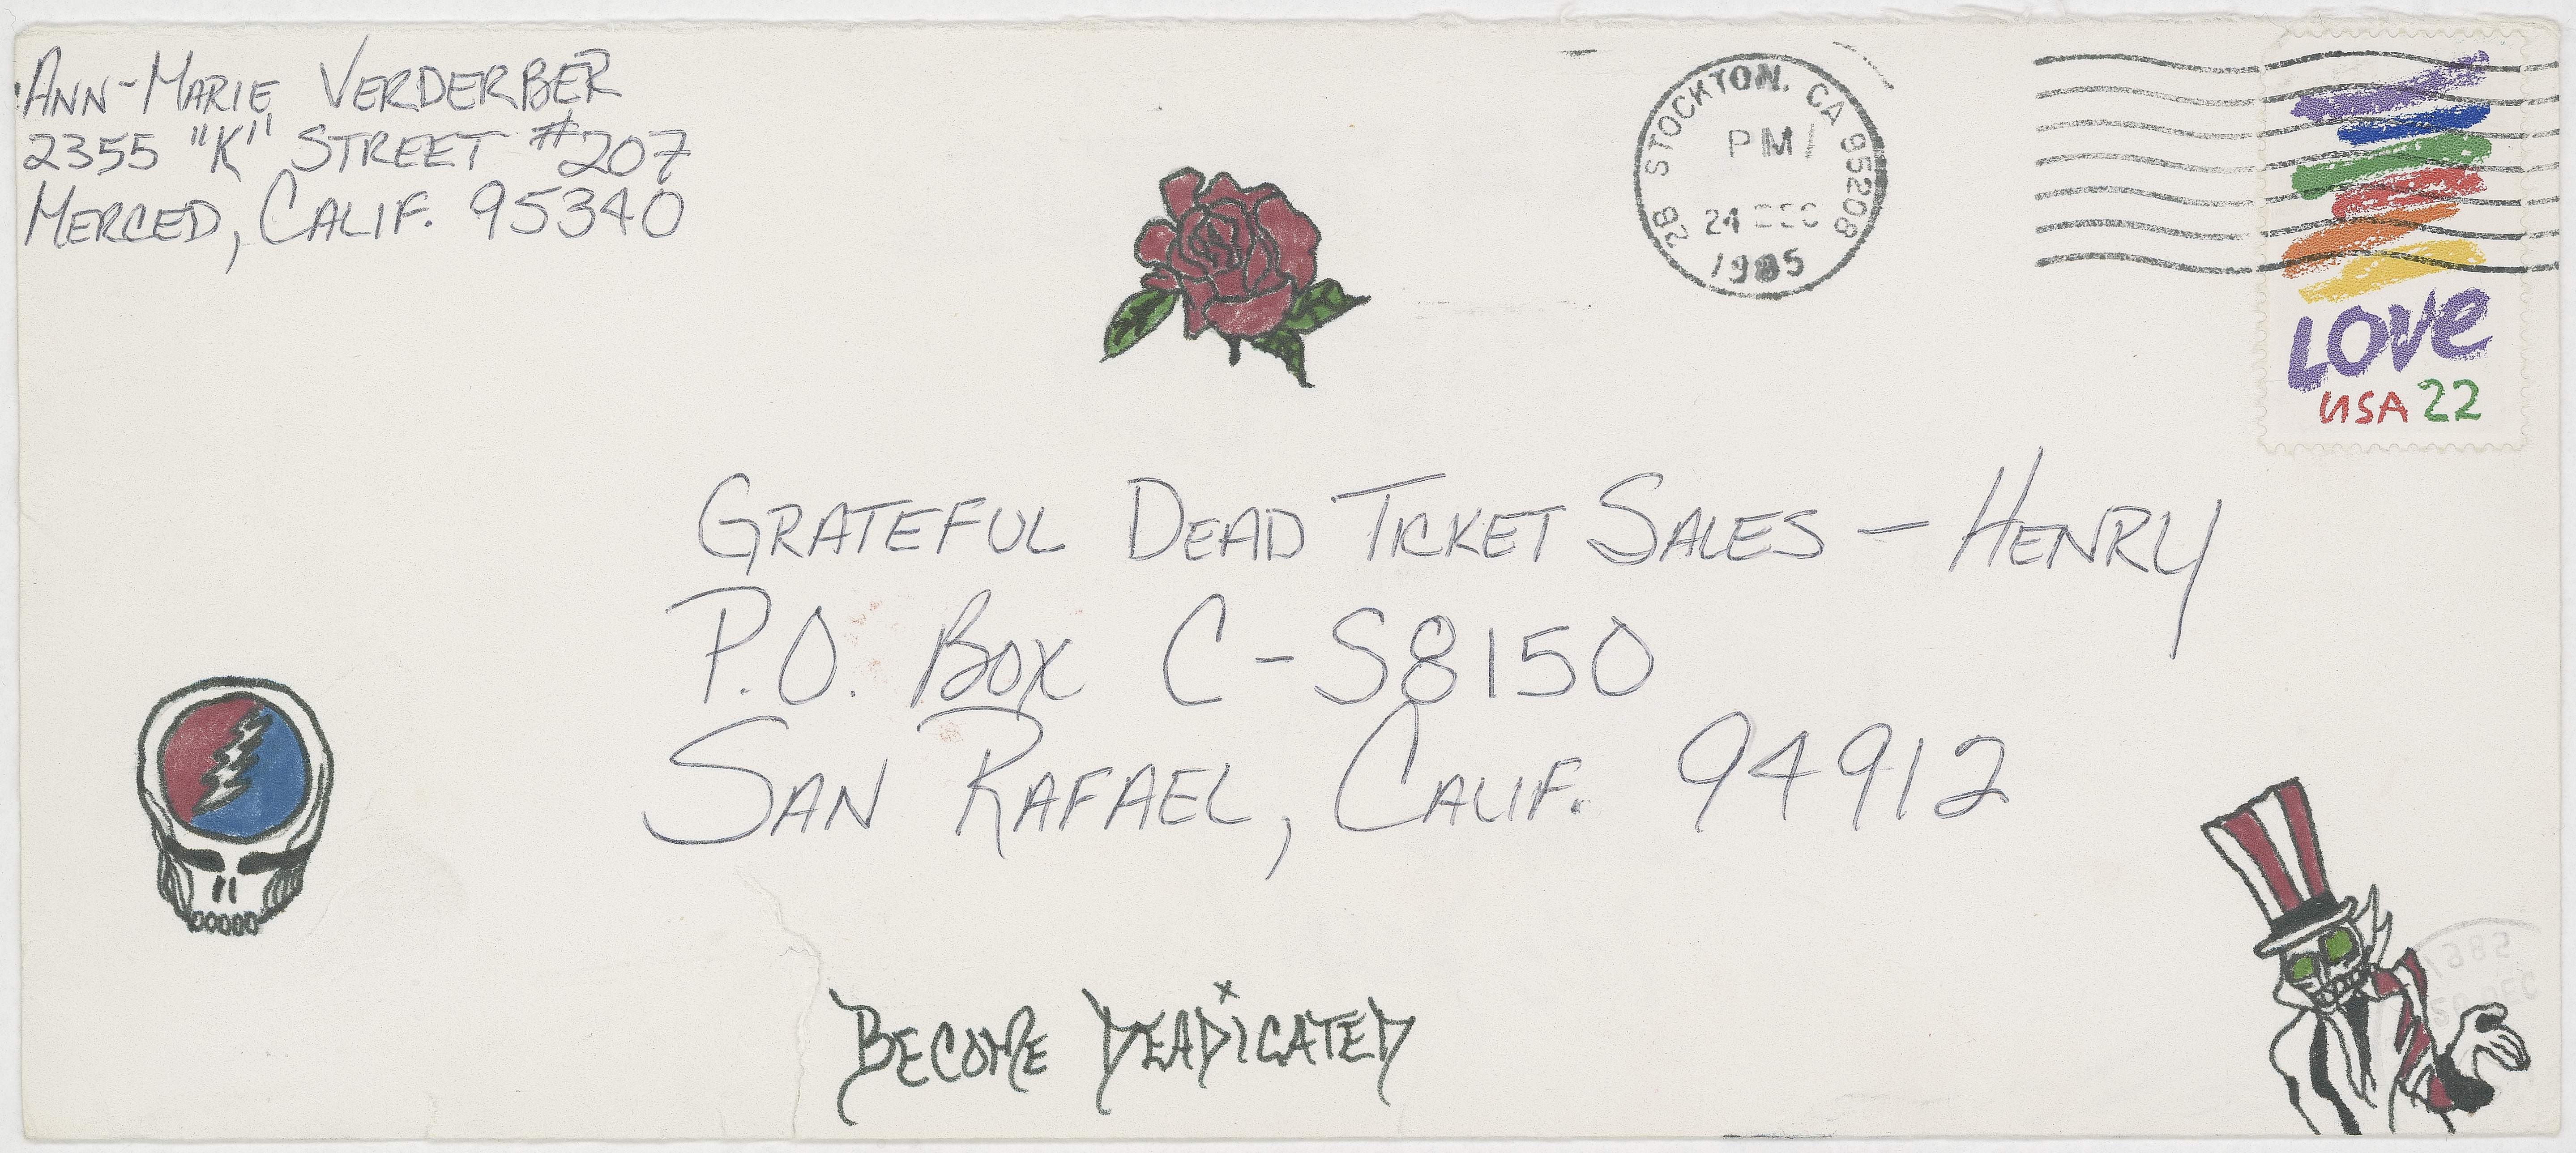 ANN-MARIE VERDERBER
2355 "K" STREET #207
MERCED, CALIF. 95340
2B STOCKTON, CA 95208
PM
24 DEC
1985
LOVE
USA 22
GRATEFUL DEAD TICKET SALES — HENRY
P.O. BOX C-S8150
SAN RAFAEL, CALIF. 94912
BECOME DEADICATED
1985
DEC